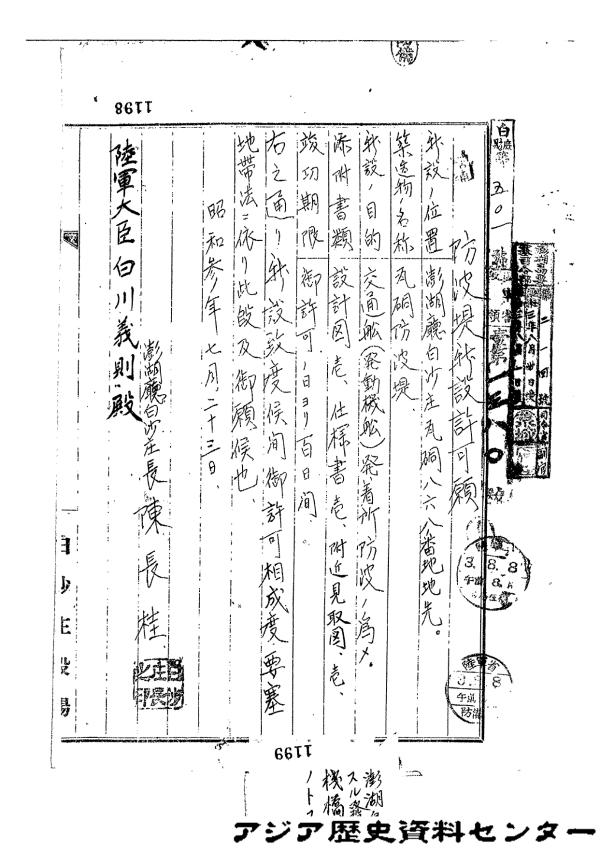 1198
防波堤新設許可願
新設ノ位置 澎湖廳白沙庄瓦硐八六八番地地先。
築造物ノ名称 瓦硐防波堤
新設ノ目的 交通船(発動機船)発着所防波ノ為メ。
添附書類 設計図壱、仕様書壱、附近見取図、壱、
竣功期限 御許可ノ日ヨリ百日間、
右之通リ新設致度候間御許可相成度要塞
地帯法ニ依リ此段及御願候也、
昭和参年七月二十三日、
澎湖廳白沙庄長 陳 長 桂
陸軍大臣白川義則殿
白沙庄役場
白沙
庄長
之印
五〇一
二一四號
3.8.8
陸軍省
8
1199
澎湖
機橋
アジア歴史資料センター